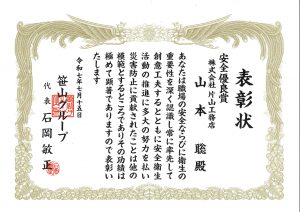 表彰状
安全優良賞
株式会社 片山工務店
山本 聡 殿
あなたは職場の安全ならびに衛生の
重要性を深く認識し常に率先して
創意工夫するとともに安全衛生
活動の推進に多大の努力を払い
災害防止に貢献されたことは他の
模範とするところでありその功績は
極めて顕著でありますので表彰い
たします
令和七年七月十五日
笹山グループ
代表 石岡敏正